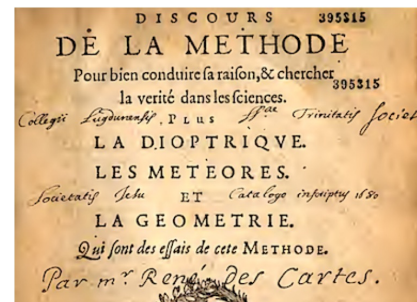 DISCOURS 395315
DE LA METHODE
Pour bien conduire ſa raiſon, & chercher 395315
la verité dans les ſciences.
Collegii Lugdunensis SSae Trinitatis Societ
PLUS
LA DIOPTRIQVE.
LES METEORES.
Societatis Jesu ET Catalogo inscriptus 1650
LA GEOMETRIE.
Qui ſont des eſſais de cete METHODE.
Par mr René Des Cartes.